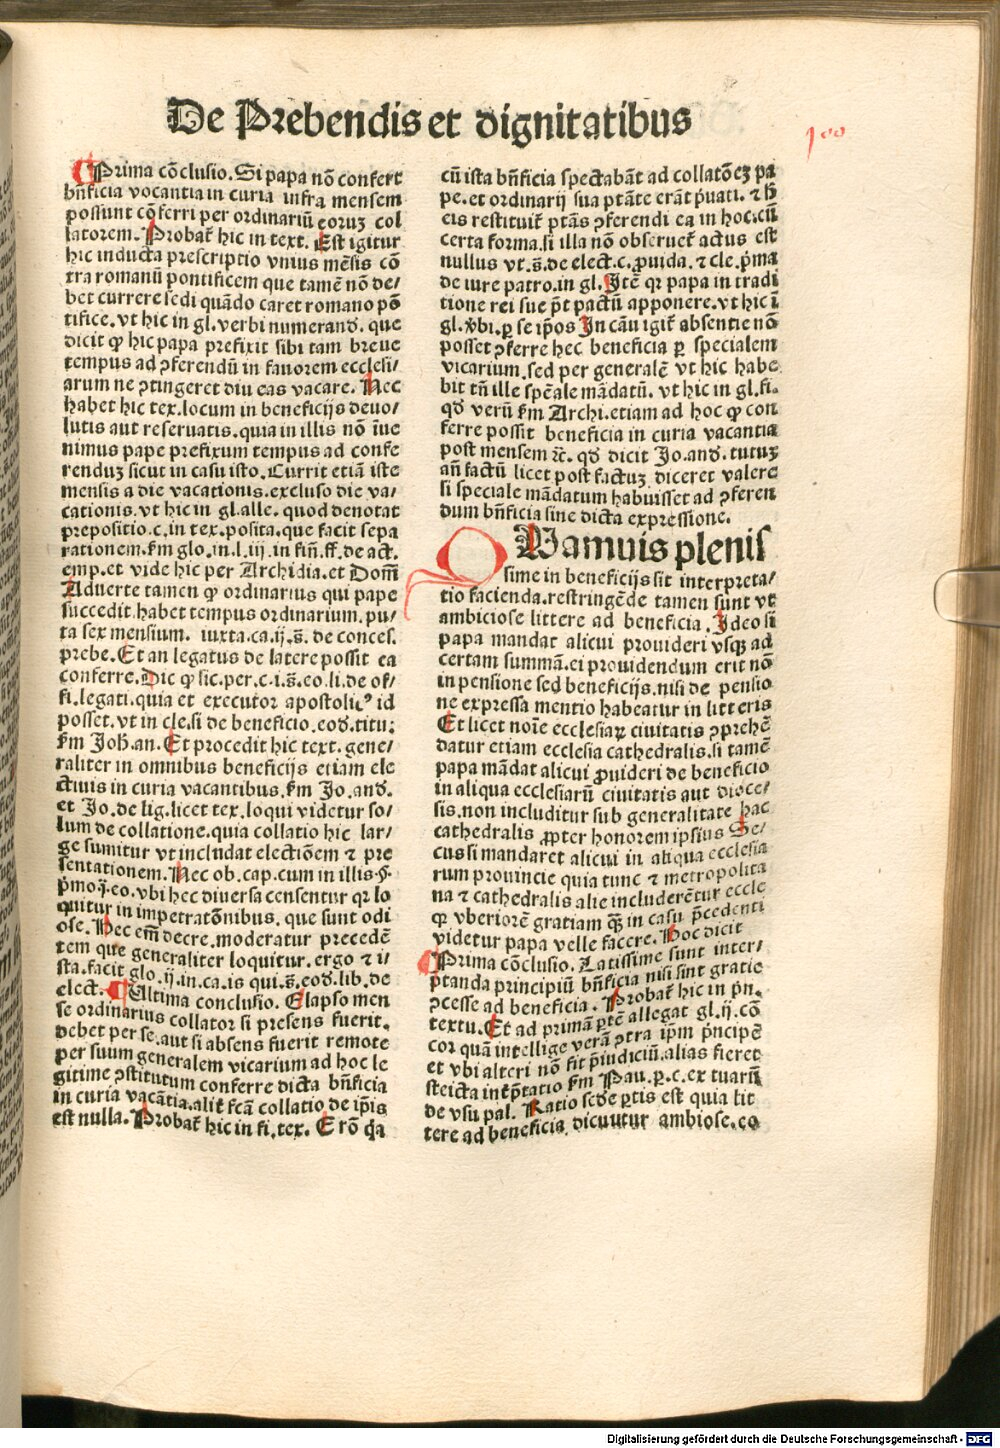 De Prebendis et dignitatibus
100
Prima cōclusio. Si papa nō confert
bn̄ficia vocantia in curia infra mensem
possunt cōferri per ordinariū eoruʒ col
latorem. Probat̄ hic in text. Est igitur
hic inducta prescriptio vnius mēsis cō
tra romanū pontificem que tamē nō de/
bet currere sedi quādo caret romano pō
tifice. vt hic in gl. verbi numerand. que
dicit ꝙ hic papa prefixit sibi tam breue
tempus ad ꝯferendū in fauorem ecclesi/
arum ne ꝯtingeret diu eas vacare. Nec
habet hic tex. locum in beneficijs deuo/
lutis aut reseruatis. quia in illis nō īue
nimus pape prefixum tempus ad confe
renduʒ sicut in casu isto. Currit etiā iste
mensis a die vacationis. excluso die va/
cationis. vt hic in gl. alle. quod denotat
prepositio. c. in tex. posita. que facit sepa
rationem. fm glo. in. l. iij. in fin̄. ff. de act.
emp. et vide hic per Archidia. et Dom̄
Aduerte tamen ꝙ ordinarius qui pape
succedit. habet tempus ordinarium. pu/
ta sex mensium. iuxta. ca. ij. s̄. de conces.
prebe. Et an legatus de latere possit ea
conferre. Dic ꝙ sic. per. c. i. s̄. eo. li. de of/
fi. legati. quia et executor apostolicꝰ id
posset. vt in cle. si de beneficio. eod. titu:
fm Joh̄. an. Et procedit hic text. gene/
raliter in omnibus beneficijs etiam ele
ctiuis in curia vacantibus. fm Jo. and.
et Jo. de lig. licet tex. loqui videtur so/
lum de collatione. quia collatio hic lar/
ge sumitur vt includat electiōem ⁊ pre
sentationem. Nec ob. cap. cum in illis. §.
p̄mo. j. eo. vbi hec diuersa censentur qꝛ lo
quitur in impetratōnibus. que sunt odi
ose. Hec em̄ decre. moderatur precedē
tem que generaliter loquitur. ergo ⁊ i/
sta. facit glo. ij. in. ca. is qui. s̄. eod. lib. de
elect. Ultima conclusio. Elapso men
se ordinarius collator si presens fuerit.
debet per se. aut si absens fuerit remote
per suum generalem vicarium ad hoc le
gitime ꝯstitutum conferre dicta bn̄ficia
in curia vacātia. alit̄ fcā collatio de ip̄is
est nulla. Probat̄ hic in fi. tex. Et rō
cū ista bn̄ficia spectabāt ad collatōeʒ pa
pe. et ordinarij sua ptāte erāt p̄uati. ⁊ h̄
eis restituit̄ ptās ꝯferendi ea in hoc. cū
certa forma. si illa nō obseruet̄ actus est
nullus vt. s̄. de elect. c. ꝓuida. ⁊ cle. p̄ma
de iure patro. in gl. Itē qꝛ papa in tradi
tione rei sue pōt pactū apponere. vt hic ī
gl. vbi. ꝑ se ip̄os In cāu igit̄ absentie nō
posset ꝯferre hec beneficia ꝑ specialem
vicarium. sed per generalē vt hic habe
bit tn̄ ille spēale mādatū. vt hic in gl. fi.
qd verū fm Archi. etiam ad hoc ꝙ con
ferre possit beneficia in curia vacantia
post mensem ⁊c. qd dicit Jo. and. tutuʒ
an̄ factū licet post factuʒ diceret valere
si speciale mādatum habuisset ad ꝯferen
dum bn̄ficia sine dicta expressione.
QUamuis plenis
sime in beneficijs sit interpreta/
tio facienda. restringēde tamen sunt vt
ambiciose littere ad beneficia. Ideo si
papa mandat alicui prouideri vsqꝫ ad
certam summā. ei prouidendum erit nō
in pensione sed beneficijs. nisi de pensio
ne expressa mentio habeatur in litteris
Et licet noīe ecclesiaꝝ ciuitatis ꝯprehē
datur etiam ecclesia cathedralis. si tamē
papa mādat alicui ꝓuideri de beneficio
in aliqua ecclesiarū ciuitatis aut dioce/
sis. non includitur sub generalitate hac
cathedralis ꝓpter honorem ipsius Se/
cus si mandaret alicui in aliqua ecclesia
rum prouincie quia tunc ⁊ metropolita
na ⁊ cathedralis alie includerētur eccle
qꝛ vberiorē gratiam qꝫ in casu p̄cedenti
videtur papa velle facere. Hoc dicit
Prima cōclusio. Latissime sunt inter/
p̄tanda principiū bn̄ficia nisi sint gratie
ꝯcesse ad beneficia. Probat̄ hic in pn̄.
textu. Et ad primā ꝑtē allegat gl. ij. cō
cor. quā intellige verā ꝯtra ip̄m p̄ncipē
et vbi alteri nō fit p̄iudiciū. alias fieret
steicta int̄p̄tatio fm Pau. ꝑ. c. ex tuarū
de vsu pal. Ratio scd̄e ꝑtis est quia lit
tere ad beneficia dicuutur ambiose. eo
Digitalisierung gefördert durch die Deutsche Forschungsgemeinschaft - DFG